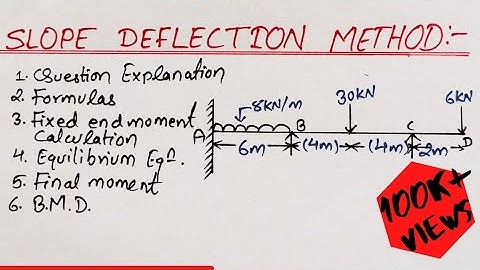 SLOPE DEFLECTION METHOD:-
1. Question Explanation
2. Formulas
3. Fixed end moment
Calculation
4. Equilibrium Eqn.
5. Final moment
6. B.M.D.
8KN/m
30KN
6KN
A
B
C
D
6m
(4m)
(4m)
2m
100K+
VIEWS